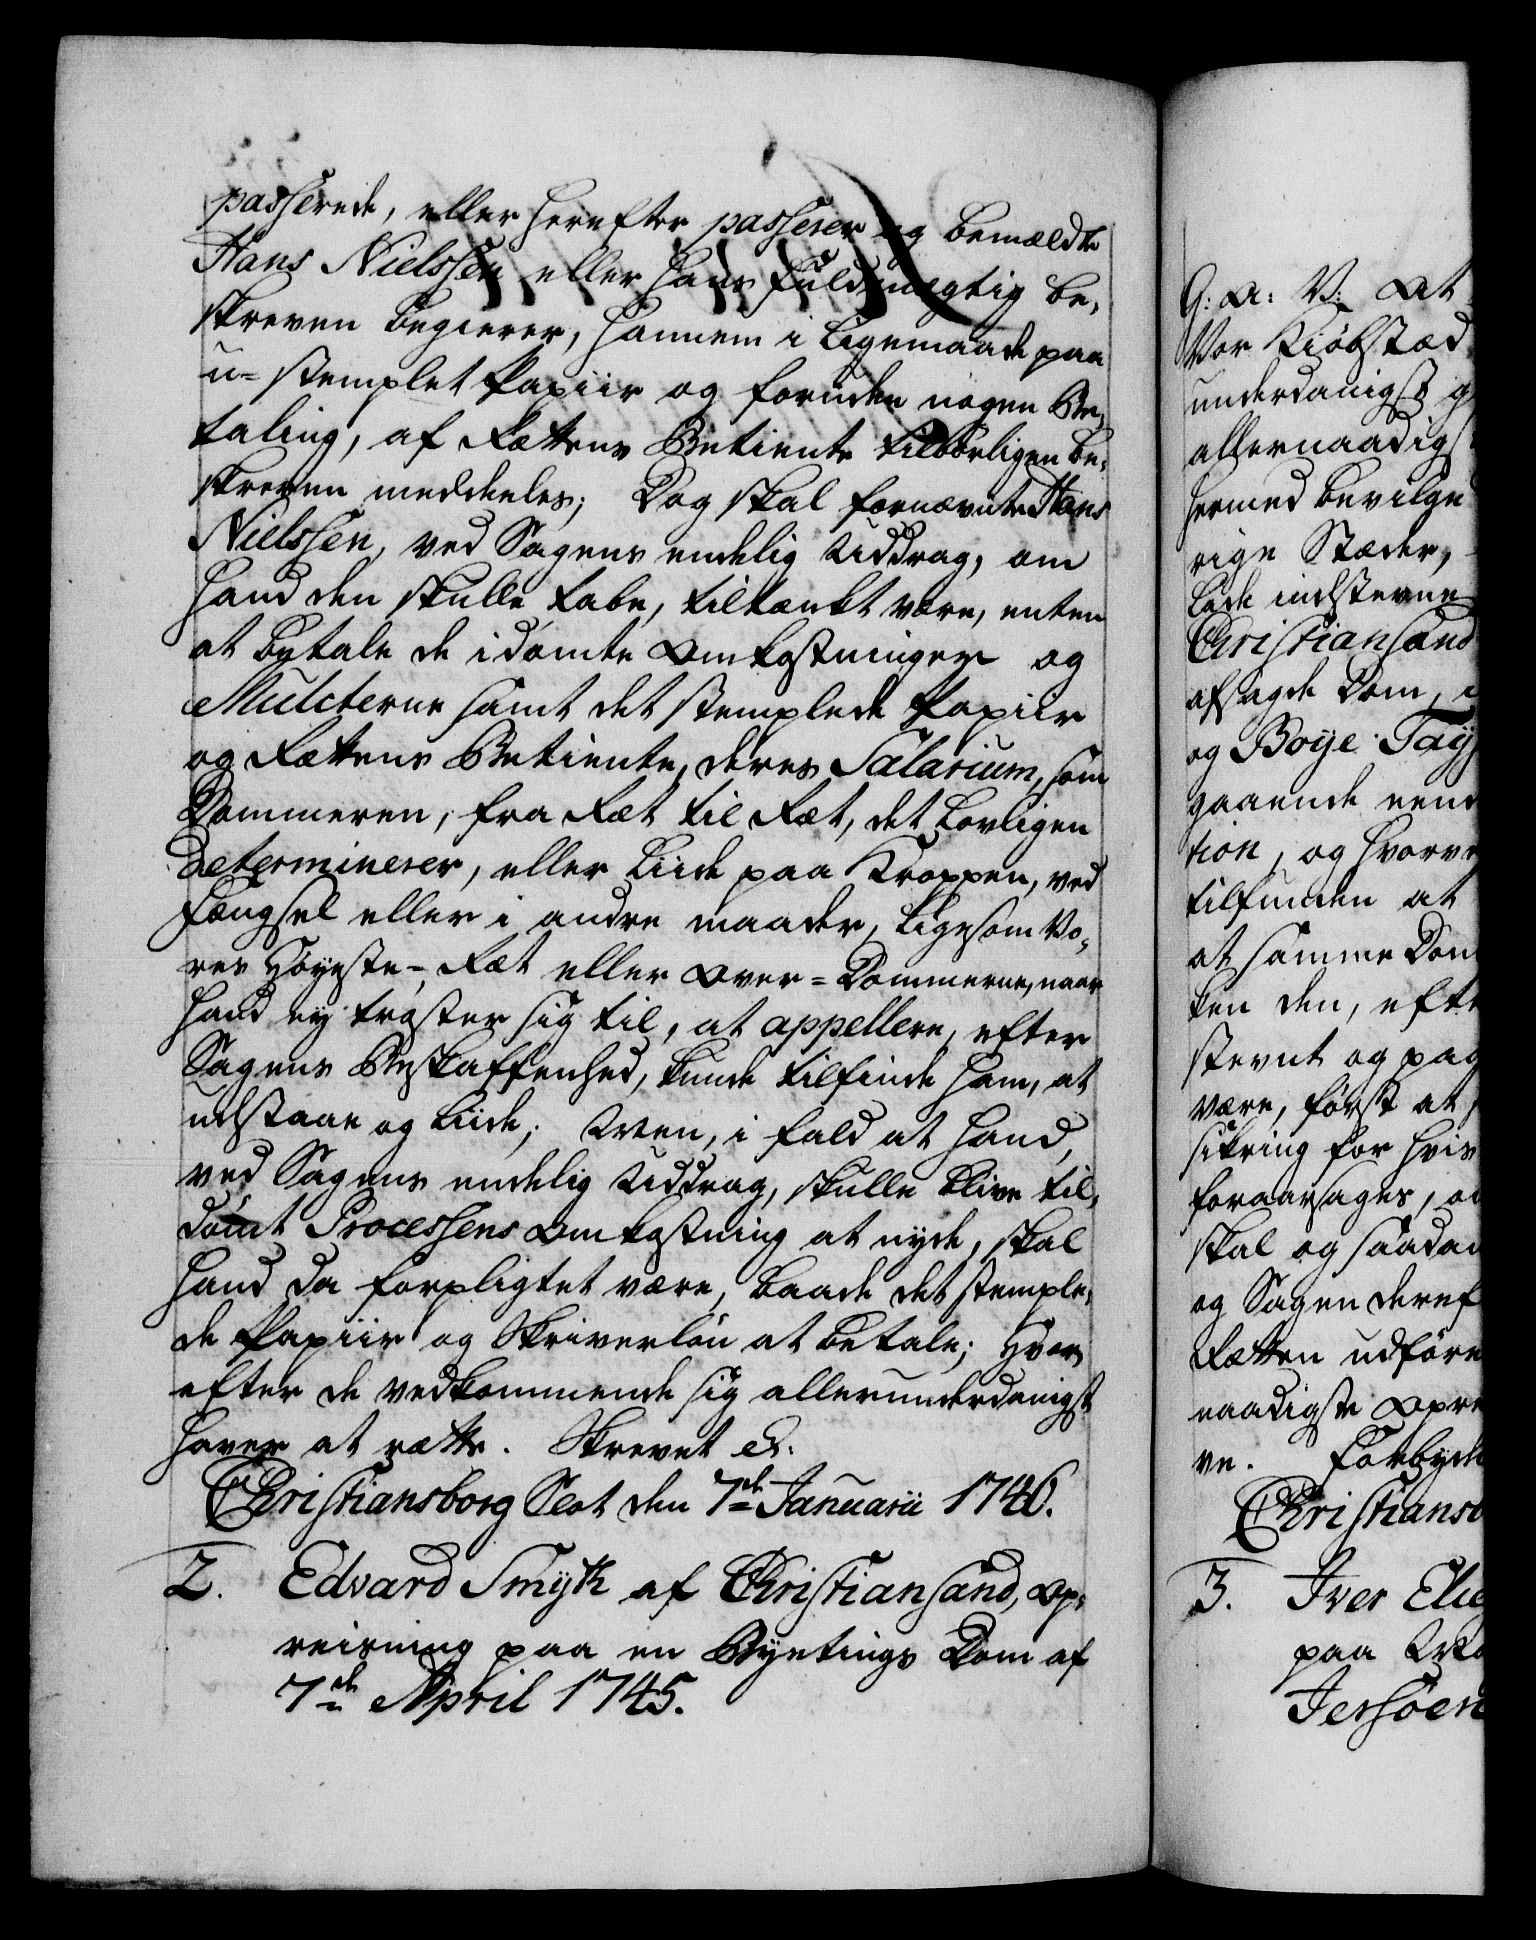 passerede, eller herefter passerer og bemældte
Hans Nielssen eller hans fuldmægtig be-
skreven begierer, hannem i Ligemaade paa
u-stemplet Papiir og foruden nogen Be-
taling, af Rættens Betiente tilbørligen be-
skreven meddeeles; Dog skal fornævnte Hans
Nielssen, ved Sagens endelig Uddrag, om
hand den skulle tabe, tiltænkt være, enten
at betale de idømte Omkostninger og
Mulcterne samt det stemplede Papiir
og Rættens Betiente, deres Salarium, som
Dommeren, fra Ræt til Ræt, det lovligen
determinerer, eller Liide paa Kroppen, ved
Fængsel eller i andre maader, Ligesom Vo-
res Høyeste-Ræt eller Over-Dommerne, naar
hand ey trøster sig til, at appellere, efter
Sagens Beskaffenhed, kunde tilfinde ham, at
udstaae og Liide; Men, i fald at hand,
ved Sagens endelig Uddrag, skulle blive til-
dømt Processens Omkostning at nyde, skal
hand da forpligtet være, baade det stemple-
de Papiir og Skriverløn at betale; Hvor-
efter de vedkommende sig allerunderdanigst
haver at rætte. Skrevet &c.
Christiansborg Slot den 7de Januarii 1746.
2. Edvard Smyth af Christiansand, Op-
reisning paa en Byetings Dom af
7de April 1745.
G: A: V: At
Vor Kiøbstæd
underdanigst
allernaadigst
hermed bevilge
rige Stæder,
lade indstevne
Christiansand
afsagde Dom,
og Boye
gaaende
tion, og hvorve
tilfunden at
at samme Dom
ken den, efte
stevnt og paa
være, først at
sikring for hvis
foraarsages,
skal og saadan
og Sagen deref
Rætten udføre
naadigste Opre
ve. Forbyde
Christiansb
3. Iver Elie
paa
Jersøen